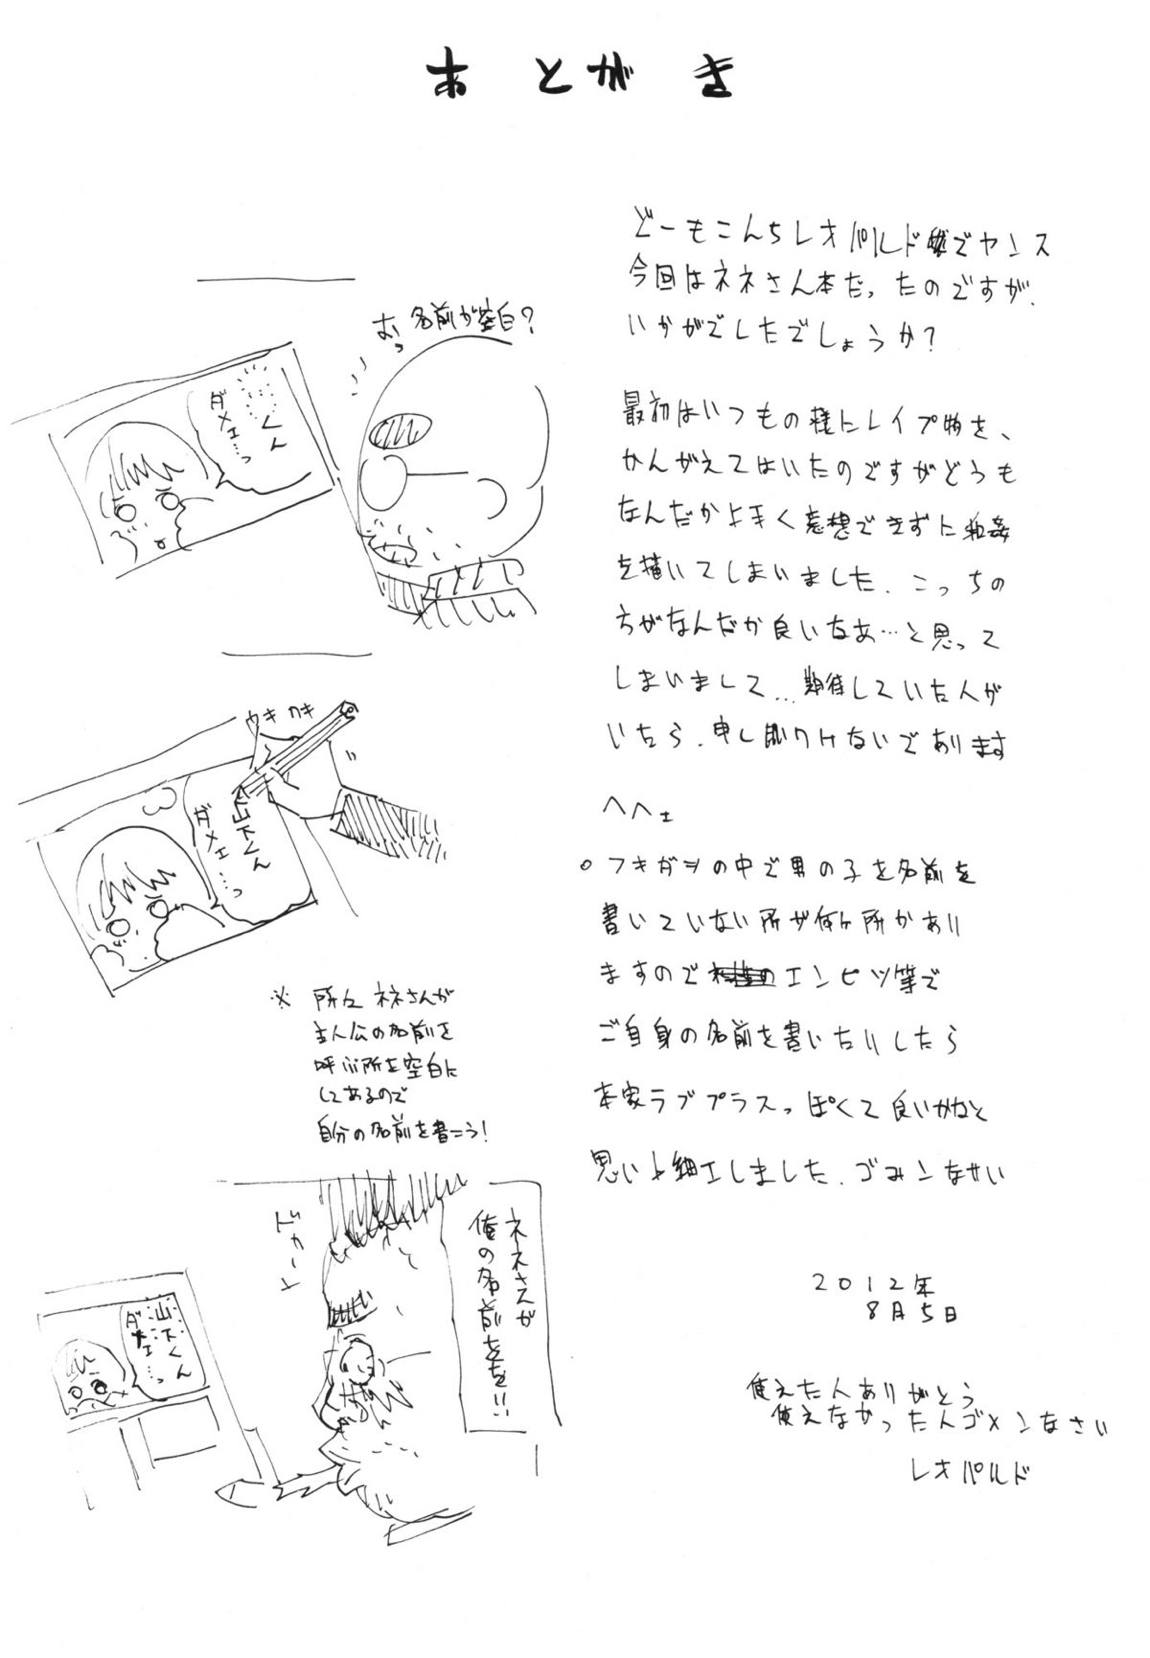 あとがき
どーもこんちレオパルドでヤンス
今回はネネさん本だったのですが、
いかがでしたでしょうか?
最初はいつもの様にレイプ物を、
かんがえてはいたのですがどうも
なんだかよく妄想できずに和姦
を描いてしまいました。こっちの
方がなんだか良いなあ…と思って
しまいまして…期待していた人が
いたら、申し訳ないであります
へへェ
○フキダシの中で男の子を名前を
書いていない所が何ヶ所かあり
ますのでエンピツ等で
ご自身の名前を書いたりしたら
本家ラブプラスっぽくて良いかなと
思い小細工しました。ゴメンなさい
2012年
8月5日
使えた人ありがとう
使えなかった人ゴメンなさい
レオパルド
むっ 名前が空白?
くん
ダメェ…っ
カキカキ
山下くん
ダメェ…っ
※ 所々ネネさんが
主人公の名前を
呼ぶ所を空白に
してあるので
自分の名前を書こう!
ネネさんが
俺の名前をを!!
ドカーン
山下くん
ダメェ…っ